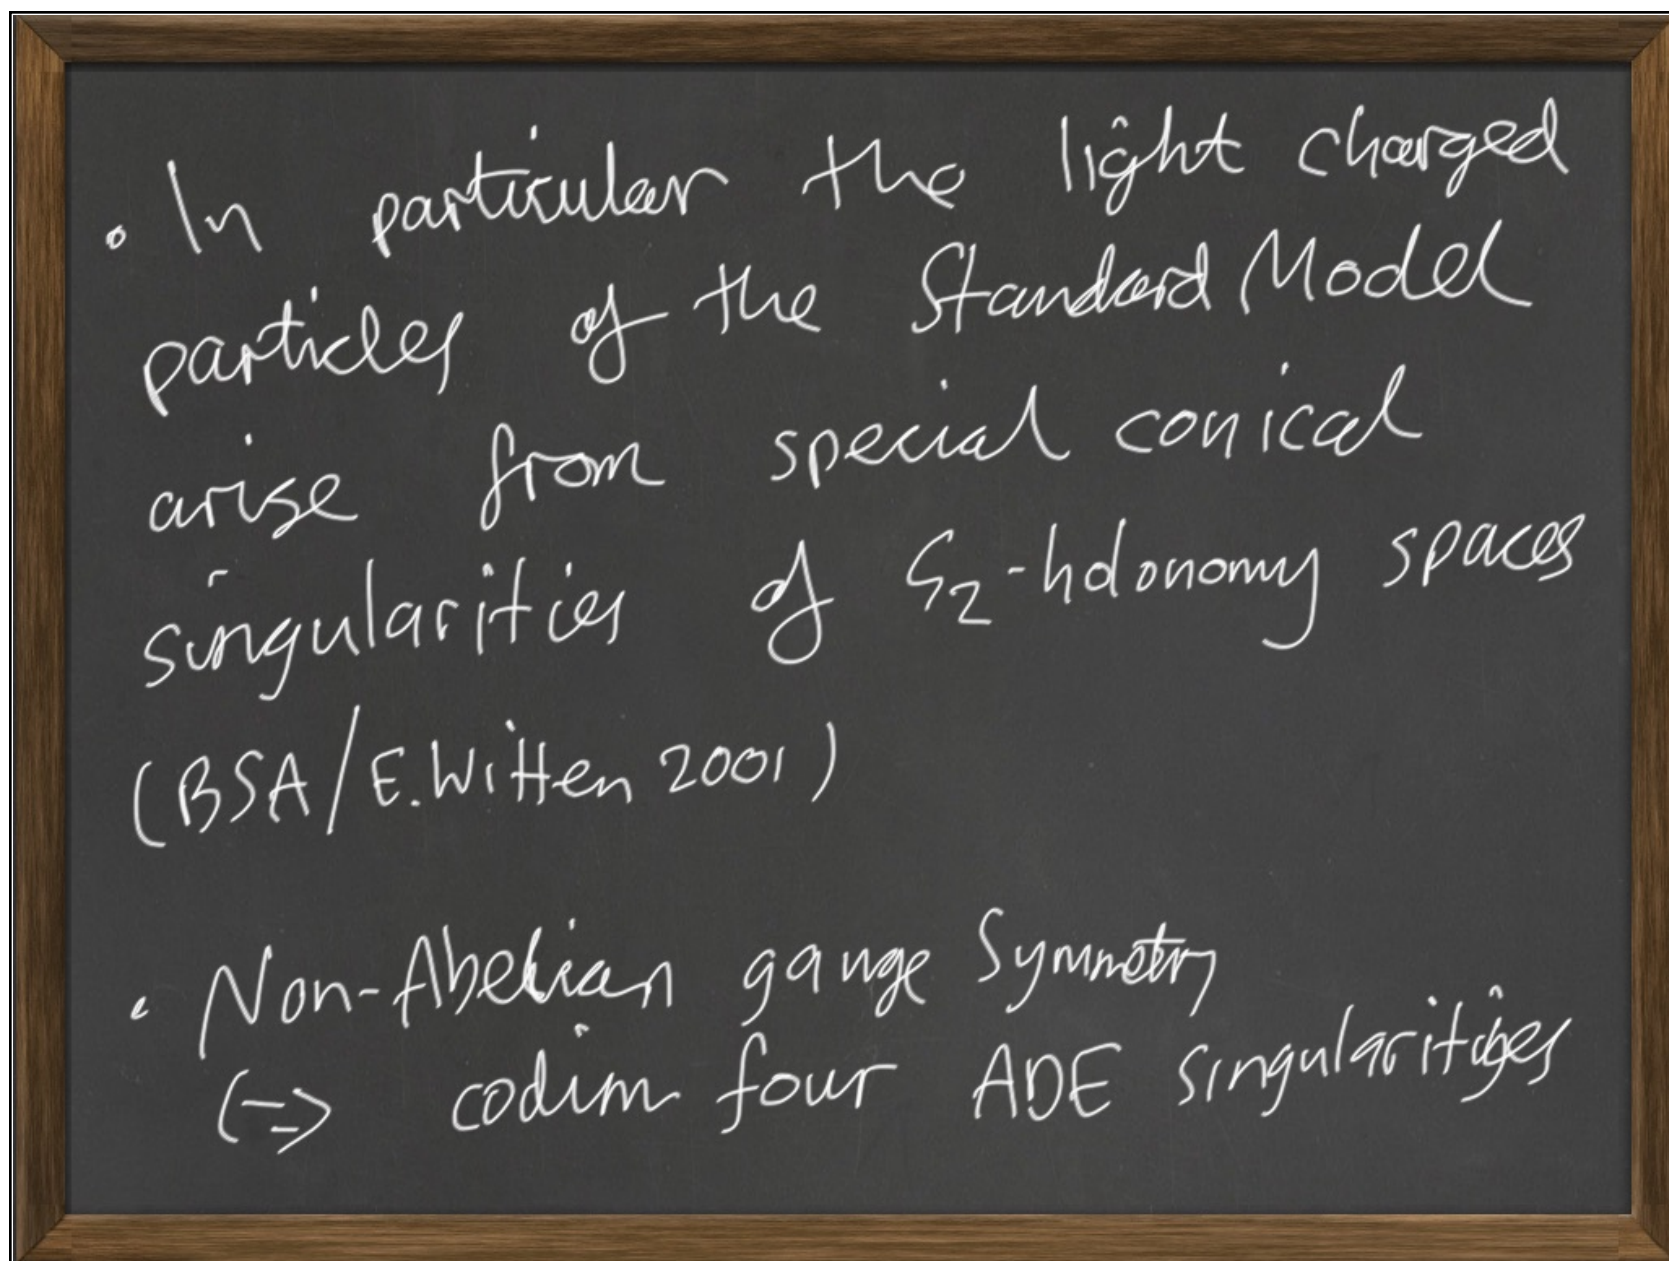 • In particular the light charged
particles of the Standard Model
arise from special conical
singularities of G₂-holonomy spaces
(BSA/E.Witten 2001)
• Non-Abelian gauge Symmetry
<=> codim four ADE singularities